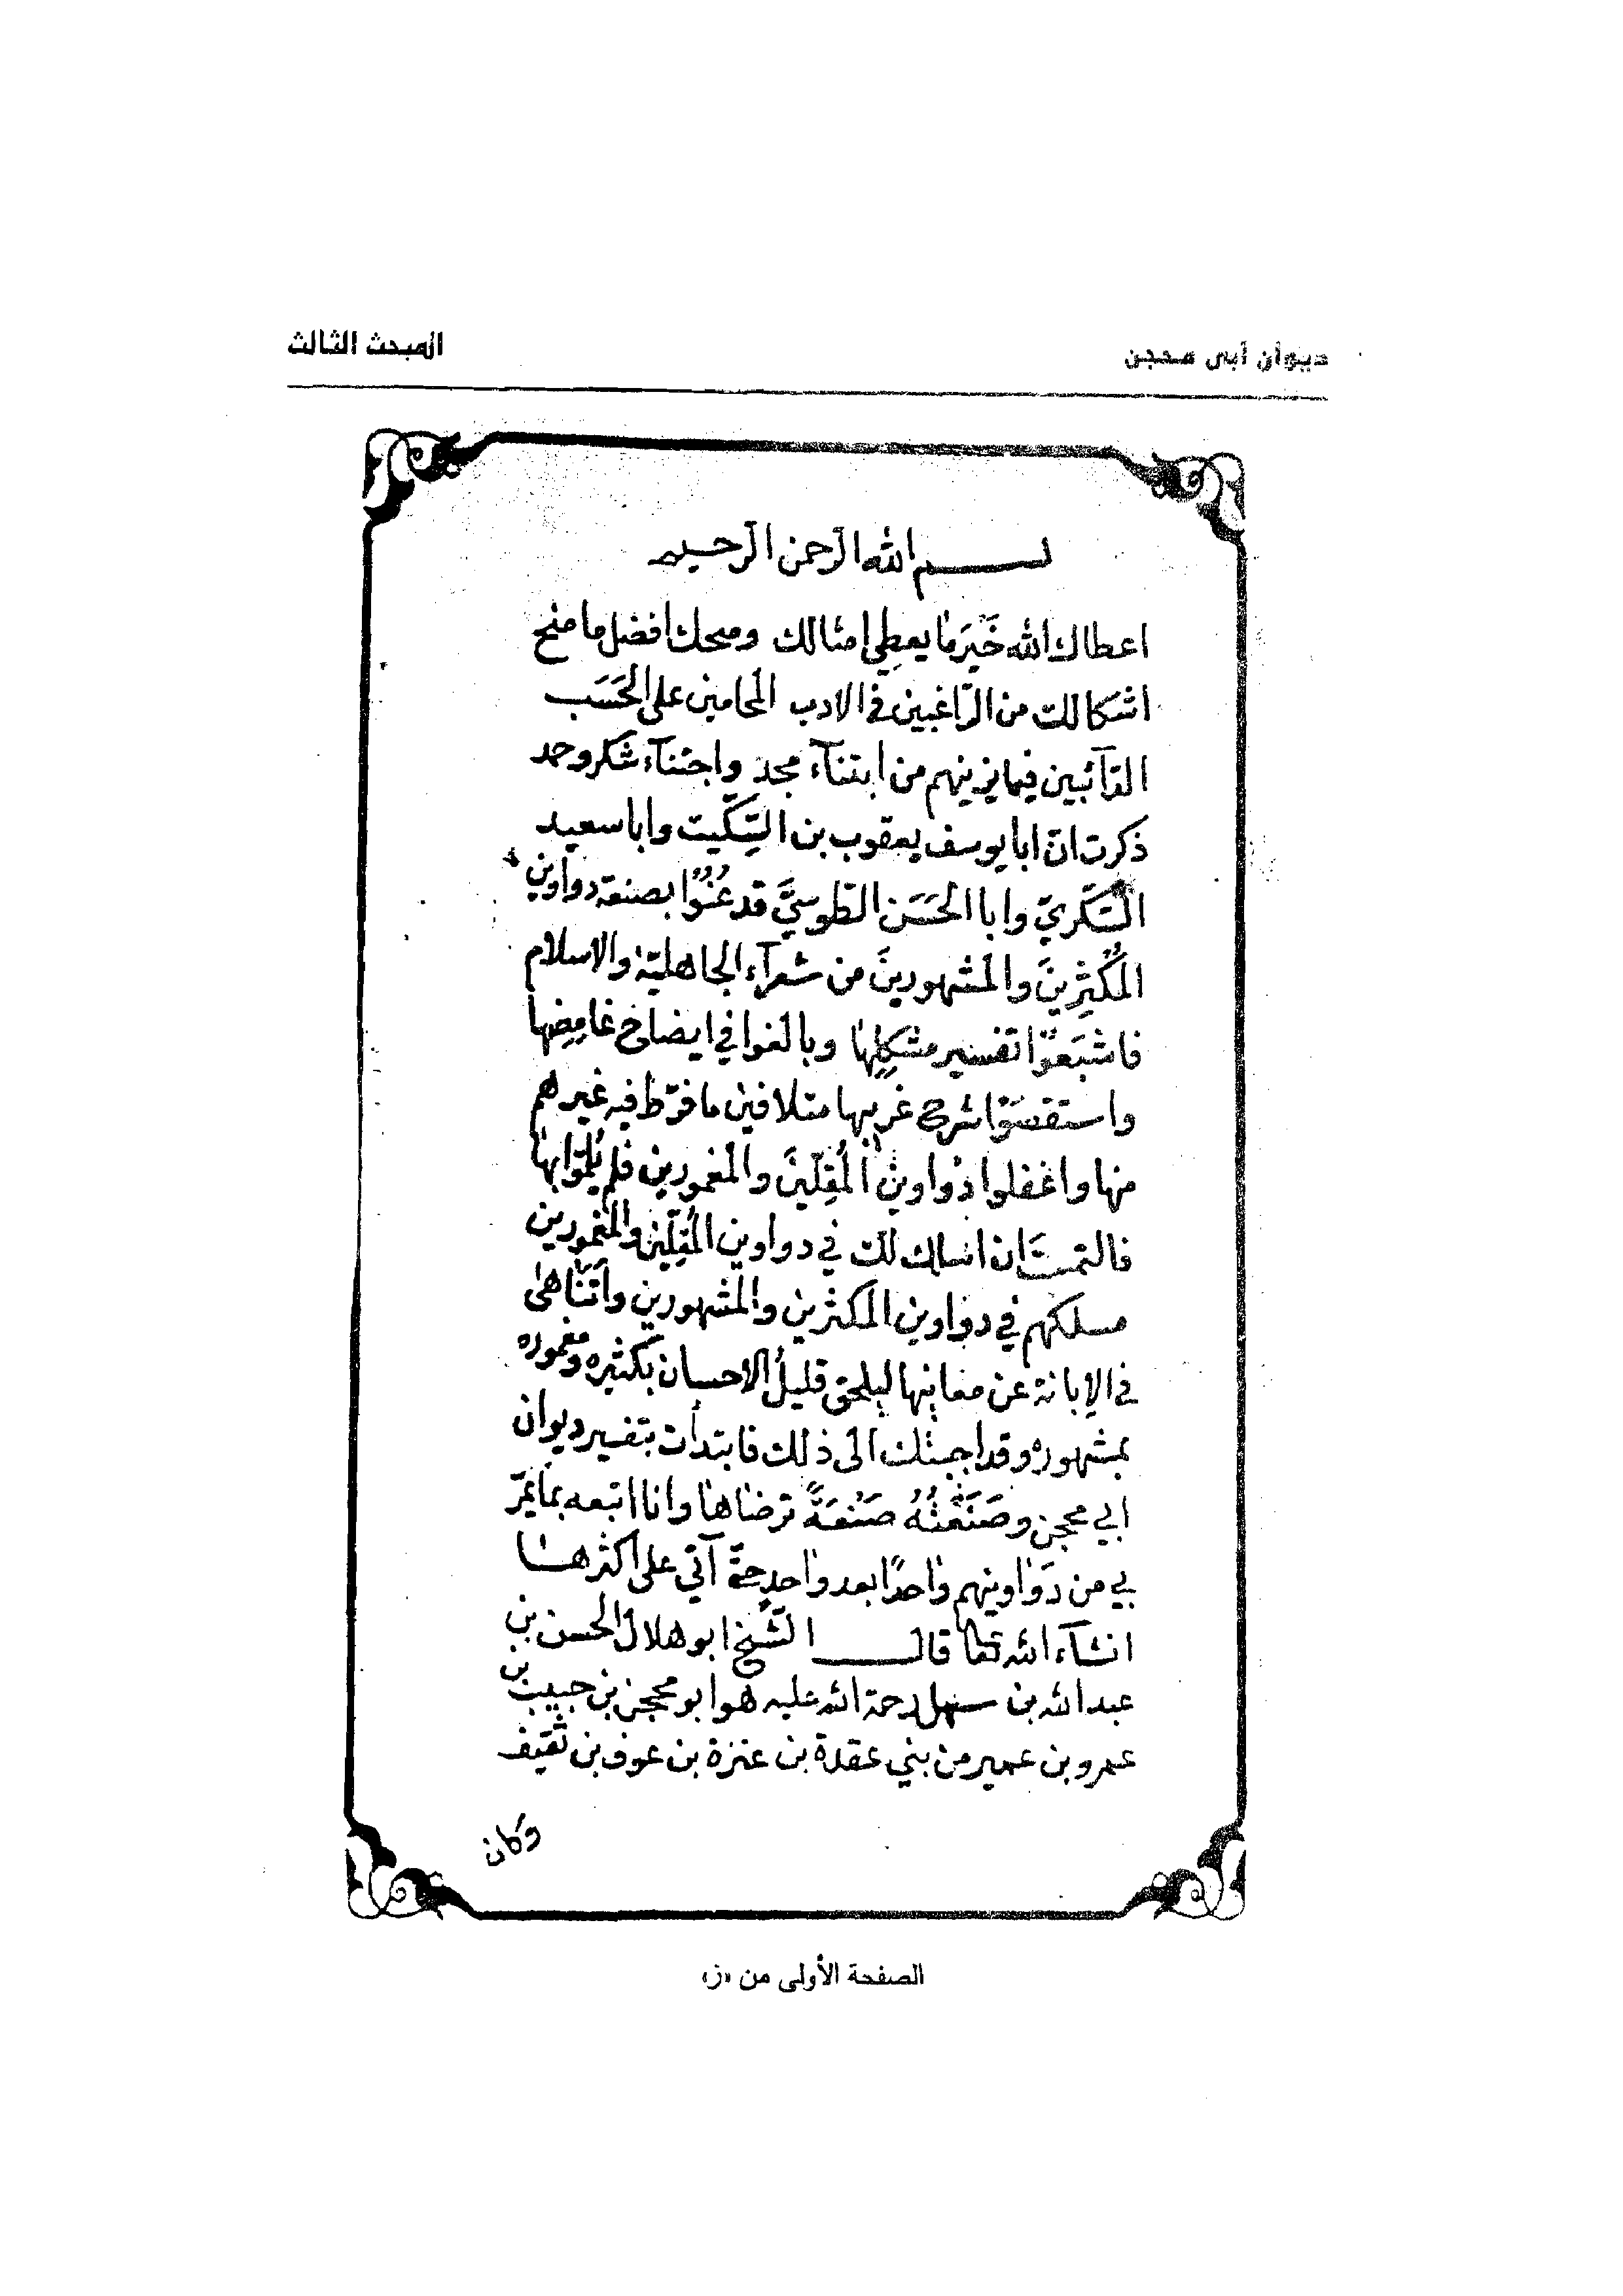 ديوان أبى محجن
المبحث الثالث
بسم الله الرحمن الرحيم
اعطاك الله خَيرَ ما يعطِي امثالك ومنحك افضل ما منح
اشكالك من الرّاغبين في الادب المحامين على الحَسَب
الدّآئبين فيما يزينهم من ابتنآء مجد واجتنآء شكر وحمد
ذكرت انّ ابا يوسف يعقوب بن السِّكّيت وابا سعيد
السّكّريّ وابا الحَسَن الطّوسيَّ قد عُنُوْا بصنعة دواوين
المُكْثِرِينَ والمَشهورينَ من شعرآء الجاهليّة والاسلام
فاشبَعُوْا تفسير مشكلِها وبالغوا في ايضاح غامِضِها
واستقصَوْا شرح غريبها متلافين ما فرّط فيه غيرهم
منها واغفلوا دواوين المُقِلّينَ والمغمورين فلم يُلمّوا بها
فالتمستَ ان اسلك لك في دواوين المُقِلّين والمغمورين
مسلكهم في دواوين المكثرين والمشهورين وأتَنَاهى
في الإبانة عن معانيها ليلحق قليلُ الاحسان بكثيره ومغموره
بمشهوره وقد اجبتك الى ذلك فابتدأت بتفسير ديوان
ابي محجن وصَنَعْتُهُ صَنْعَةً ترضاها وانا اتبعه بما يمرّ
بي من دَوَاوينهم واحدًا بعد واحدٍ حتّى آتي على اكثرها
انشآء الله تعا قال الشّيخ ابو هلال الحسن بن
عبد الله بن سهل رحمة الله عليه هو ابو محجن بن حبيب بن
عمرو بن عمير من بني عقدة بن عنزة بن عوف بن ثقيف
وكان
الصفحة الأولى من «ز»